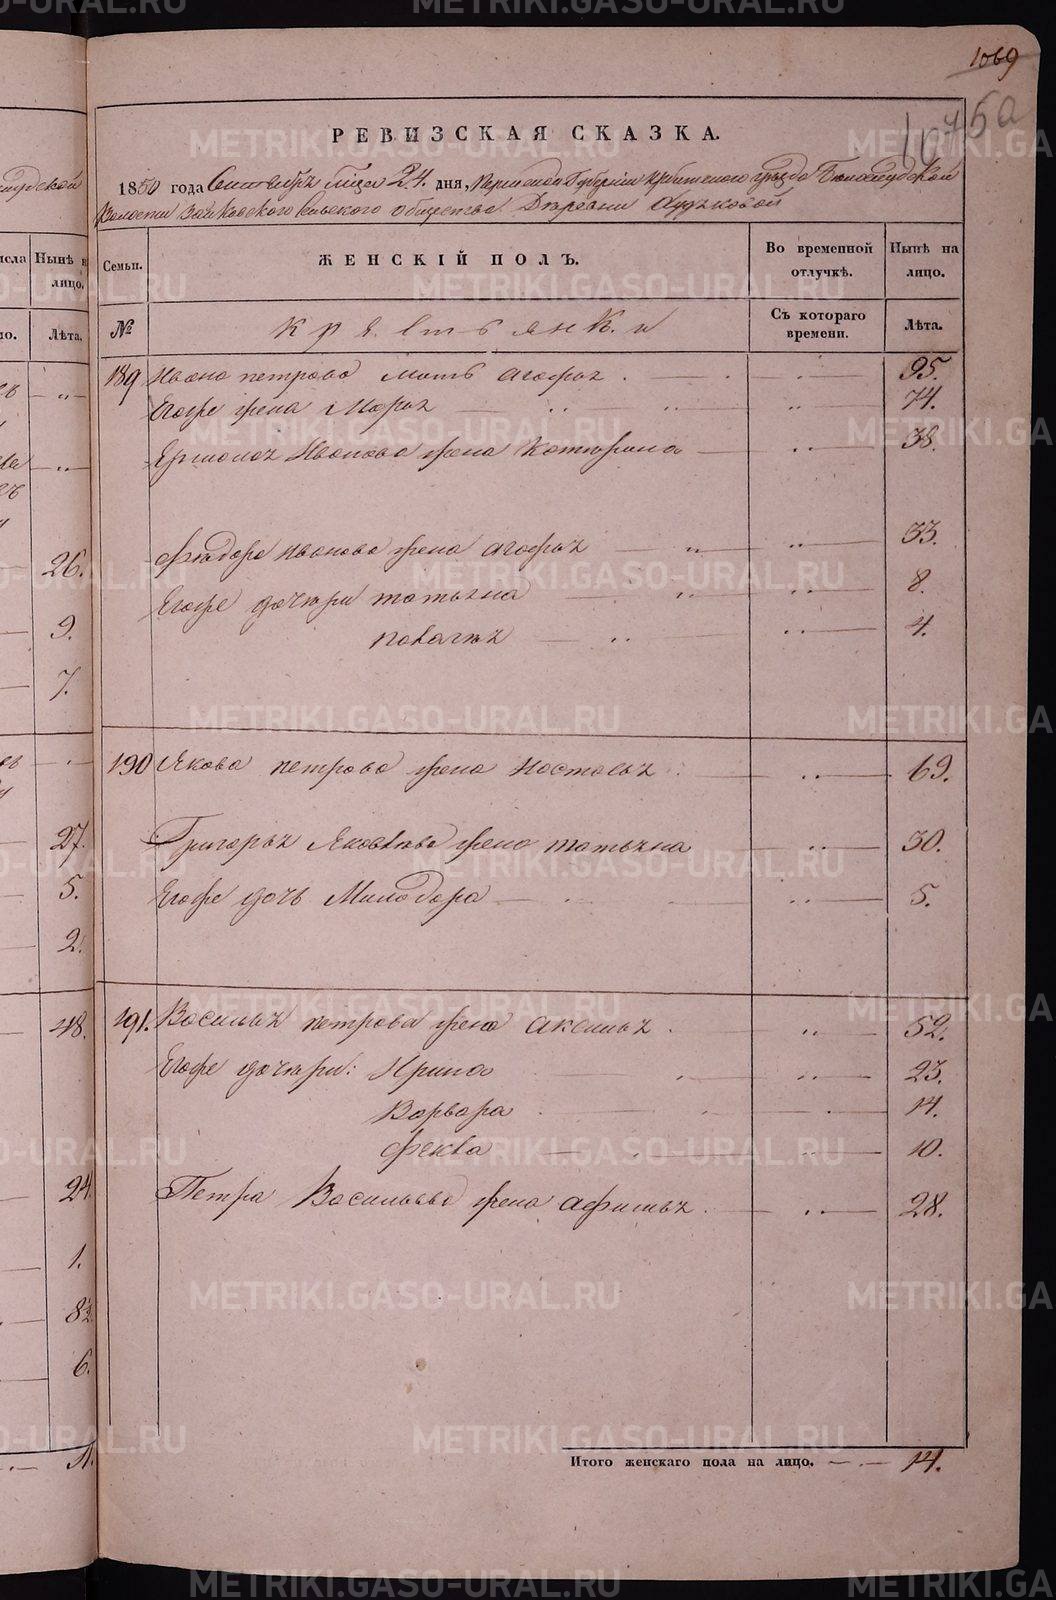 1069
1045а
РЕВИЗСКАЯ СКАЗКА.
1850 года Сентября м-ца 24. дня, Пермской Губернии Ирбитского уезда Белослудской
Волости Зайковского сельского общества Деревни
Семьи.
ЖЕНСКІЙ ПОЛЪ.
Во временной отлучкѣ.
Нынѣ на лицо.
№
Крестьянки
Съ котораго времени.
Лѣта.
189 Ивана петрова мать агафья 95.
Егоже жена Марья 74.
Ермолая Иванова жена Катерина 38.
Федора иванова жена агафья 33.
Егоже дочери татьяна 8.
палагея 4.
190 Якова петрова жена Настасья 69.
Григорья Яковлева жена татьяна 30.
Егоже дочь Милодора 5.
191. Василья петрова жена аксинья 52.
Егоже дочери: Ирина 23.
Варвара 14.
фекла 10.
Петра Васильева жена афимья 28.
Итого женскаго пола на лицо. 14.
Нынѣ на лицо.
Лѣта.
26.
9.
7.
27.
5.
2.
48.
24.
1.
6.
METRIKI.GASO-URAL.RU